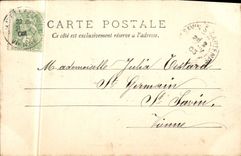 CARTE POSTALE
Ce côté est exclusivement réservé à l'adresse.
Mademoiselle Julia Testard
St Germain
St Savin
Vienne